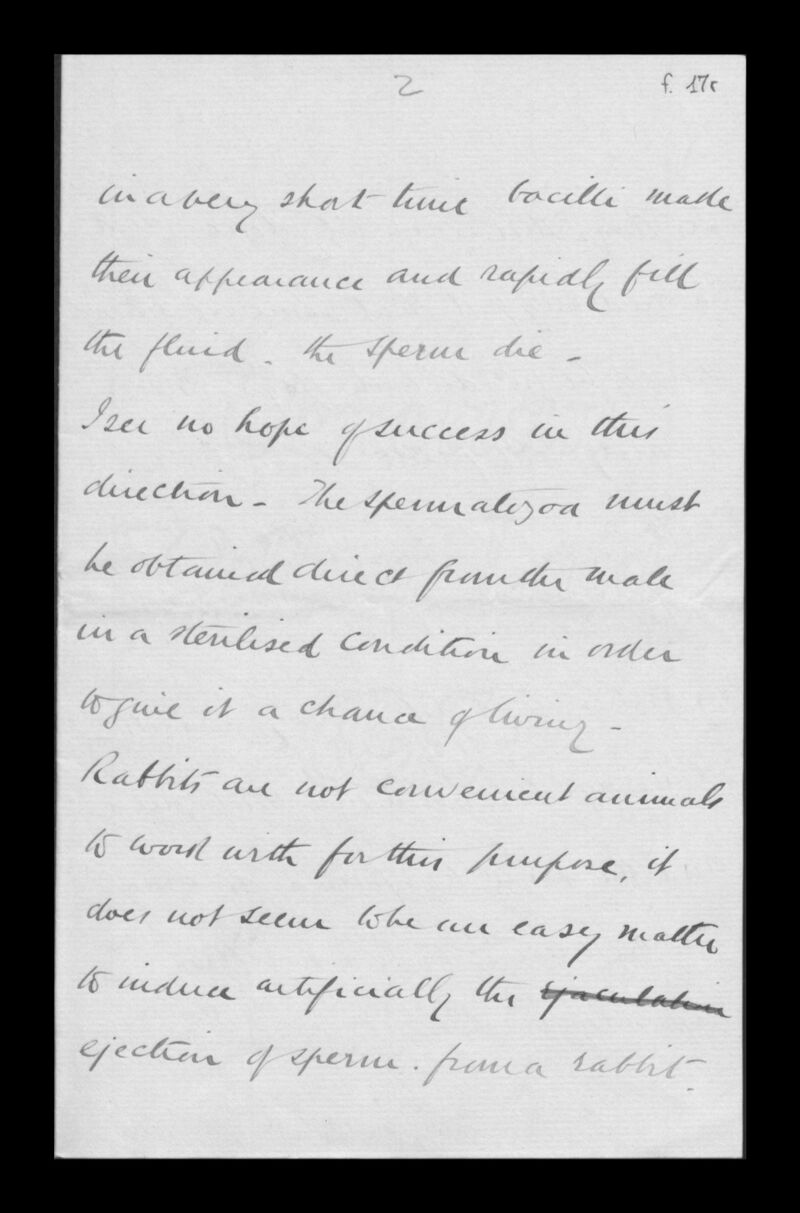 2
f. 17r
in a very short time bacilli made
their appearance and rapidly fill
the fluid - the sperm die -
I see no hope of success in this
direction - The spermatozoa must
be obtained direct from the male
in a sterilised condition in order
to give it a chance of living -
Rabbits are not convenient animals
to work with for this purpose, it
does not seem to be an easy matter
to induce artificially the ejaculation
ejection of sperm. from a rabbit.